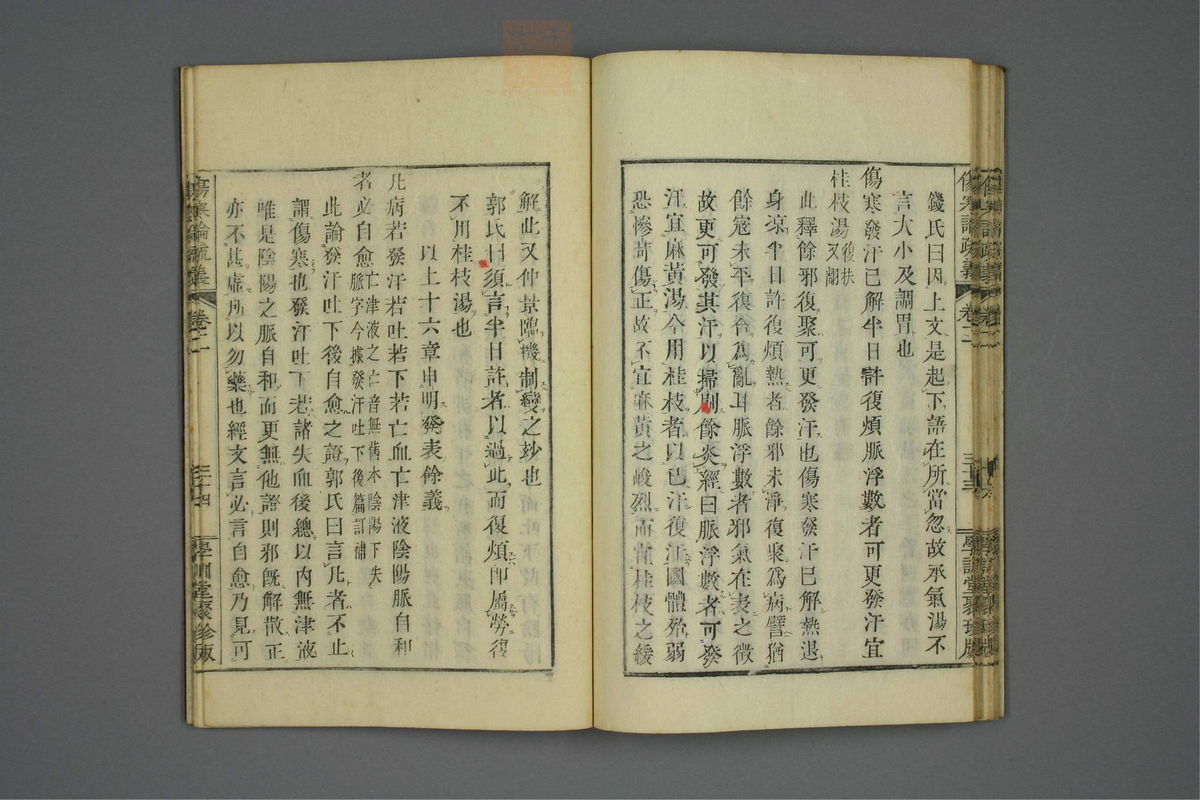 錢氏曰因上文是起下語在所當忽故承氣湯不
言大小及調胃也
傷寒發汗已解半日許復煩脈浮數者可更發汗宜
桂枝湯
此釋餘邪復聚可更發汗也傷寒發汗已解熱退
身凉半日許復煩熱者餘邪未淨復聚爲病譬猶
餘寇未平復合爲亂耳脈浮數者邪氣在表之徵
故更可發其汗以掃刷餘炎經曰脈浮數者可發
汗宜麻黃湯今用桂枝者以已汗復汗國體殆弱
恐慘苛傷正故不宜麻黃之峻烈而宜桂枝之緩
傷寒論疏義 卷二 三十三 學訓堂聚珍版
解此又仲景臨機制變之妙也
郭氏曰須言半日許者以過此而復煩卽屬勞復
不用桂枝湯也
以上十六章申明發表餘義
凡病若發汗若吐若下若亡血亡津液陰陽脈自和
者必自愈亡津液之亡音無舊本陰陽下失脈字今據發汗吐下後篇訂補
此論發汗吐下後自愈之證郭氏曰言凡者不止
謂傷寒也發汗吐下若諸失血後總以內無津液
唯是陰陽之脈自和而更無他證則邪旣解散正
亦不甚虛所以勿藥也經文言必言自愈乃見可
傷寒論疏義 卷二 三十四 學訓堂聚珍版